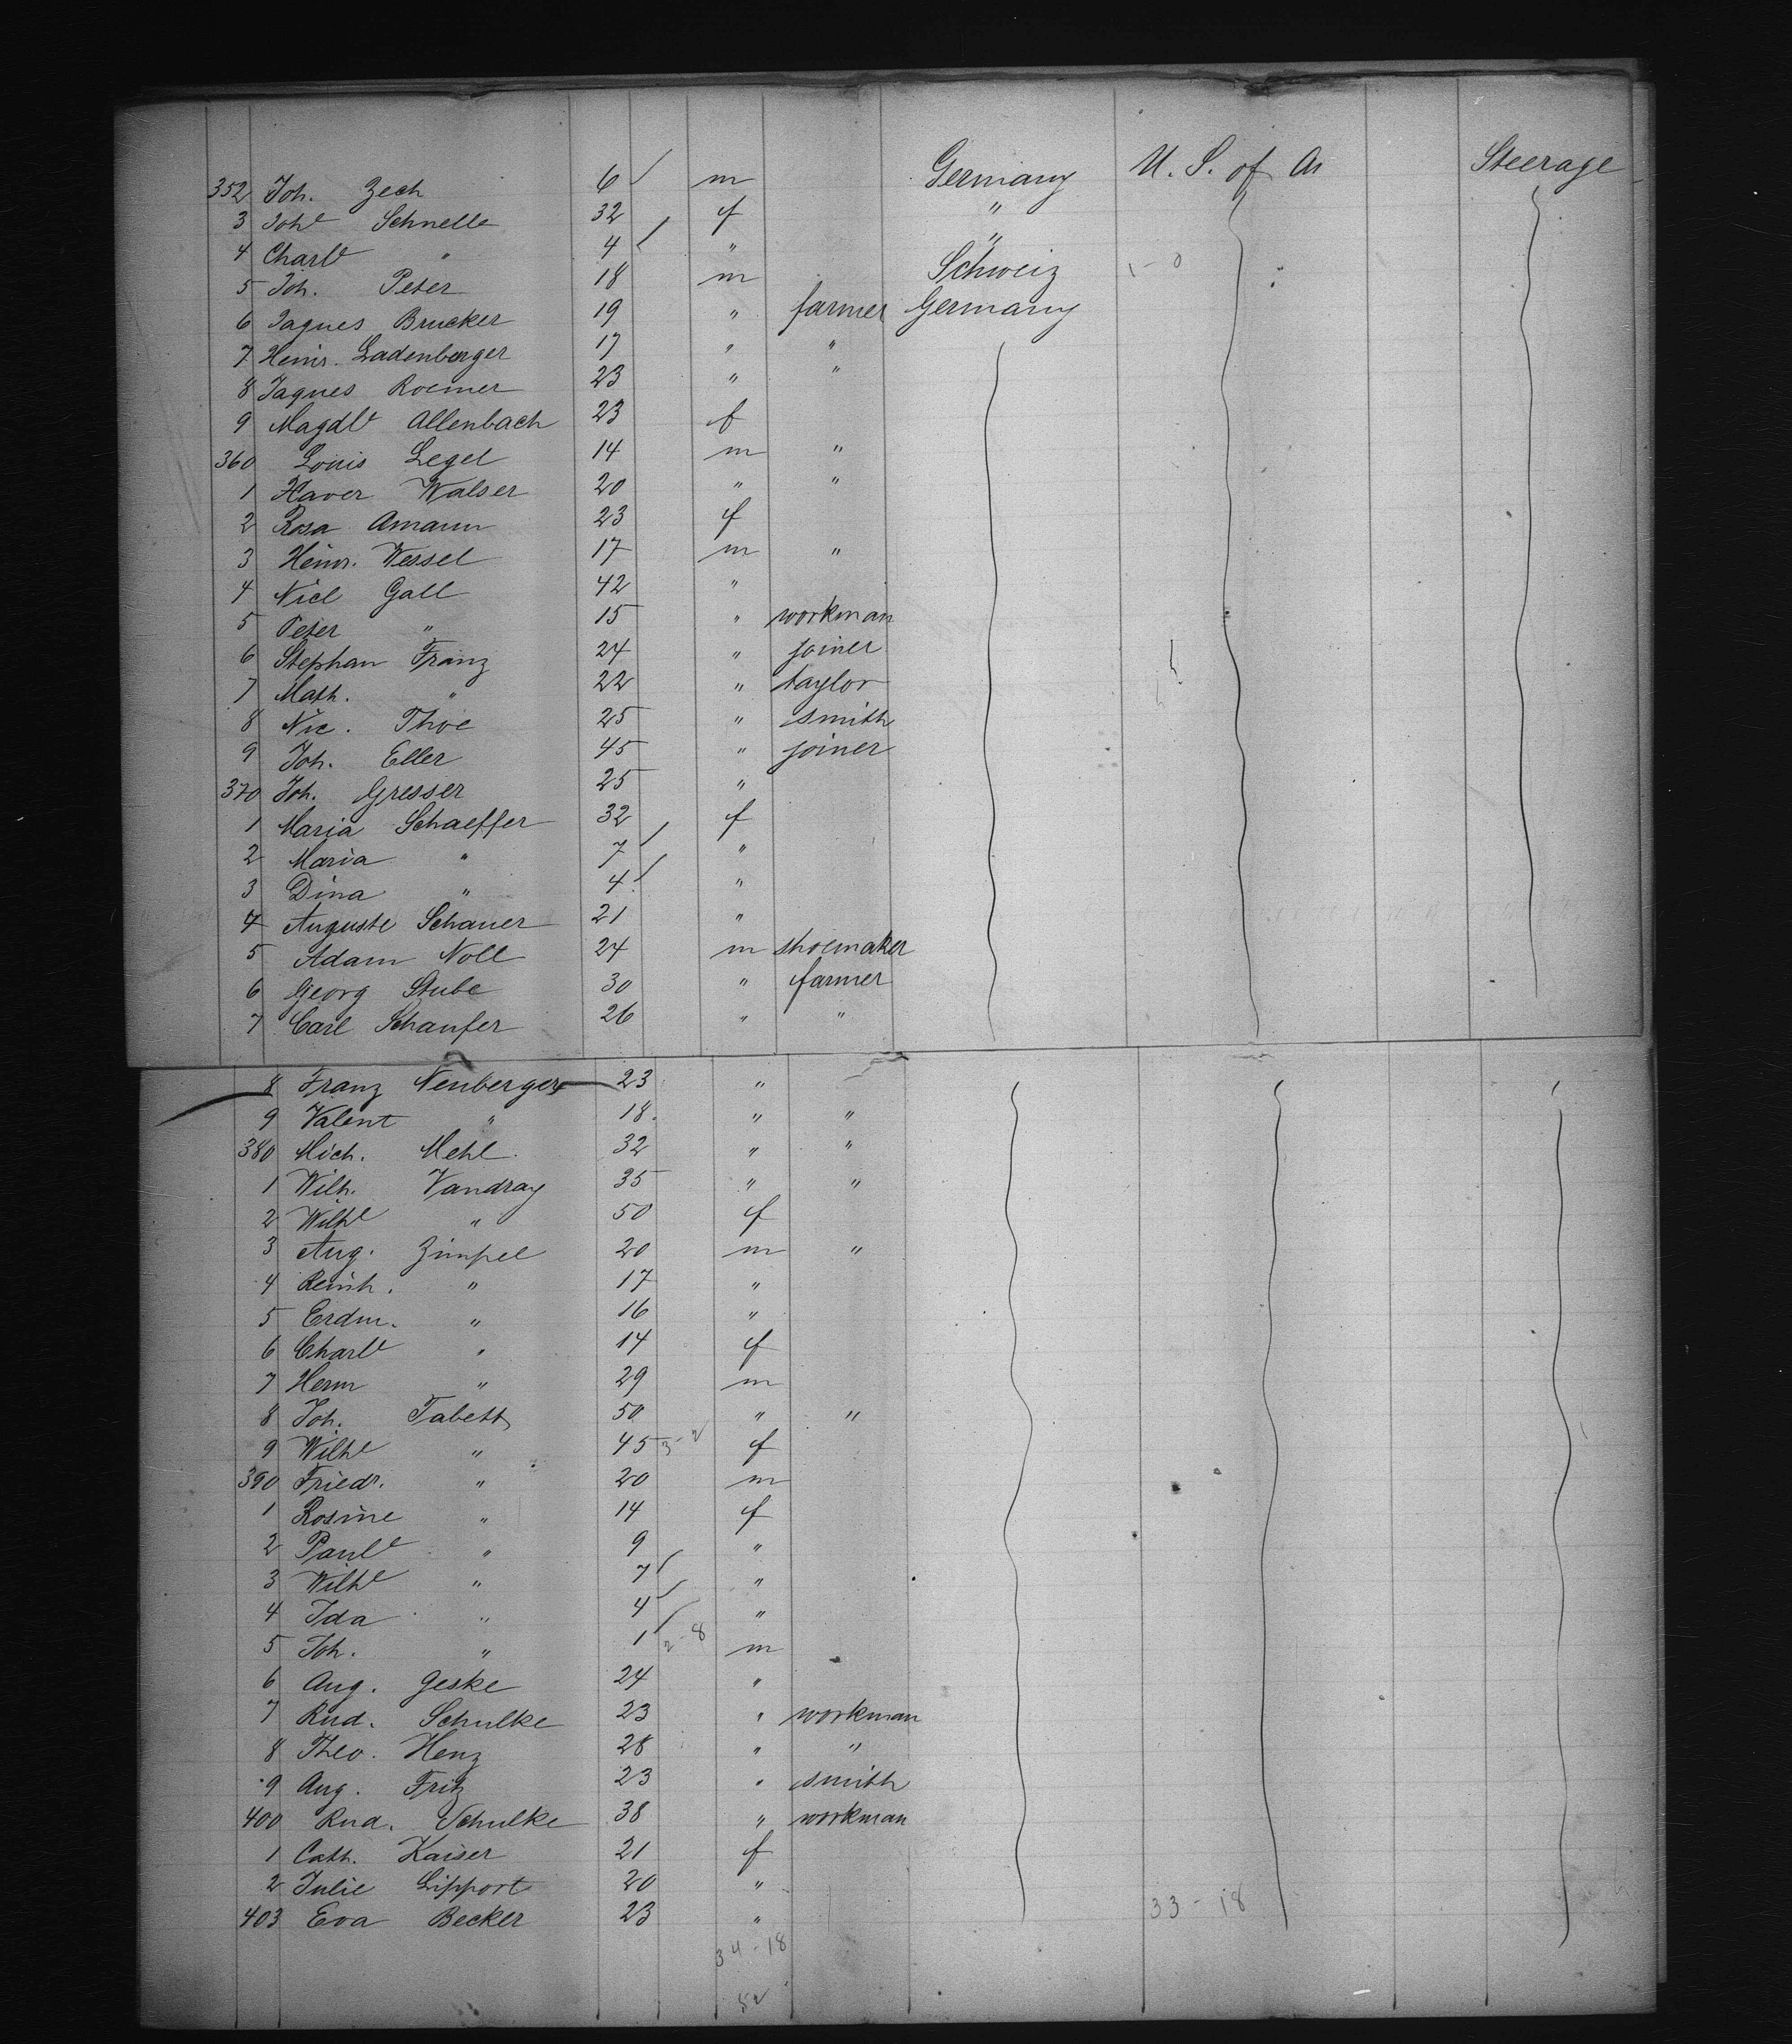 352 Joh. Zech 6 m Germany U. S. of A Steerage
3 Johe Schnelle 32 f "
4 Charlt " 4 " "
5 Joh. Peter 18 m Schweiz 1-0
6 Jaques Brucker 19 " farmer Germany
7 Heinr. Ladenberger 17 " "
8 Jaques Roemer 23 " "
9 Magdle Allenbach 23 f
360 Louis Legel 14 m "
1 Xaver Walser 20 " "
2 Rosa Amann 23 f
3 Heinr. Wessel 17 m "
4 Nicl Gall 42 "
5 Peter " 15 " workman
6 Stephan Franz 24 " joiner
7 Math. " 22 " taylor
8 Nic. Thoe 25 " smith
9 Joh. Eller 45 " joiner
370 Joh. Gresser 25 "
1 Maria Schaeffer 32 f
2 Maria " 7 "
3 Dina " 4 "
4 Auguste Schauer 21 "
5 Adam Noll 24 m shoemaker
6 Georg Stube 30 " farmer
7 Carl Schaufer 26 " "
8 Franz Neuberger 23 "
9 Valent " 18 " "
380 Mich. Mehl 32 " "
1 Wilh. Vandray 35 " "
2 Wilhe " 50 f
3 Aug. Zimpel 20 m "
4 Reinh. " 17 "
5 Erdm. " 16 "
6 Charlt " 14 f
7 Herm " 29 m
8 Joh. Tabett 50 " "
9 Wilhe " 45 3-2 f
390 Friedr. " 20 m
1 Rosine " 14 f
2 Paule " 9 "
3 Wilhe " 7 "
4 Ida " 4 "
5 Joh. " 1 2-8 m
6 Aug. Geske 24 "
7 Rud. Schulke 23 " workman
8 Theo. Henz 28 " "
9 Aug. Fritz 23 " smith
400 Rud. Schulke 38 " workman
1 Cath. Kaiser 21 f
2 Julie Lipport 20 "
403 Eva Becker 23 " 33-18
34-18
52